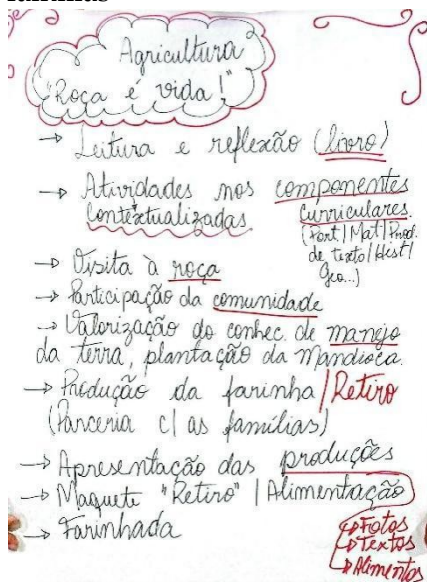 Agricultura
"Roça é vida!"
→ Leitura e reflexão (livro)
→ Atividades nos componentes
contextualizadas curriculares.
(Port|Mat|Prod.
de texto|Hist|
Geo...)
→ Visita à roça
→ Participação da comunidade
→ Valorização do conhec. de manejo
da terra, plantação da mandioca.
→ Produção da farinha/Retiro
(Parceria c/ as famílias)
→ Apresentação das produções
→ Maquete "Retiro" | Alimentação
→ Farinhada
→ Fotos
→ Textos
→ Alimentos